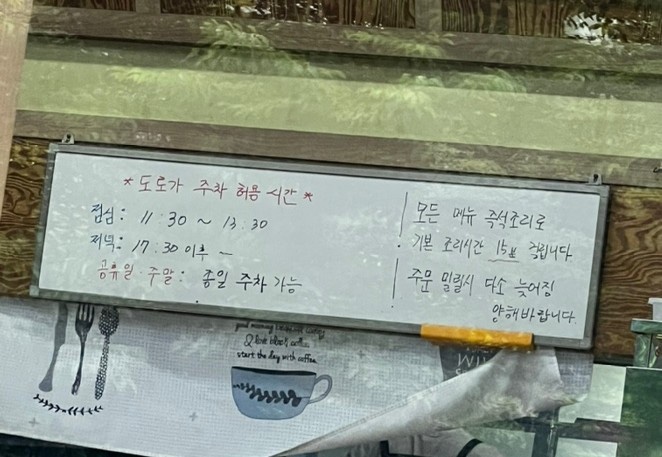 * 도로가 주차 허용 시간 *
점심: 11:30 ~ 13:30
저녁: 17:30 이후 ~
공휴일·주말: 종일 주차 가능
모든 메뉴 즉석조리로
기본 조리시간 15분 걸립니다
주문 밀릴시 다소 늦어짐
양해바랍니다.
good morning
start the day with coffee